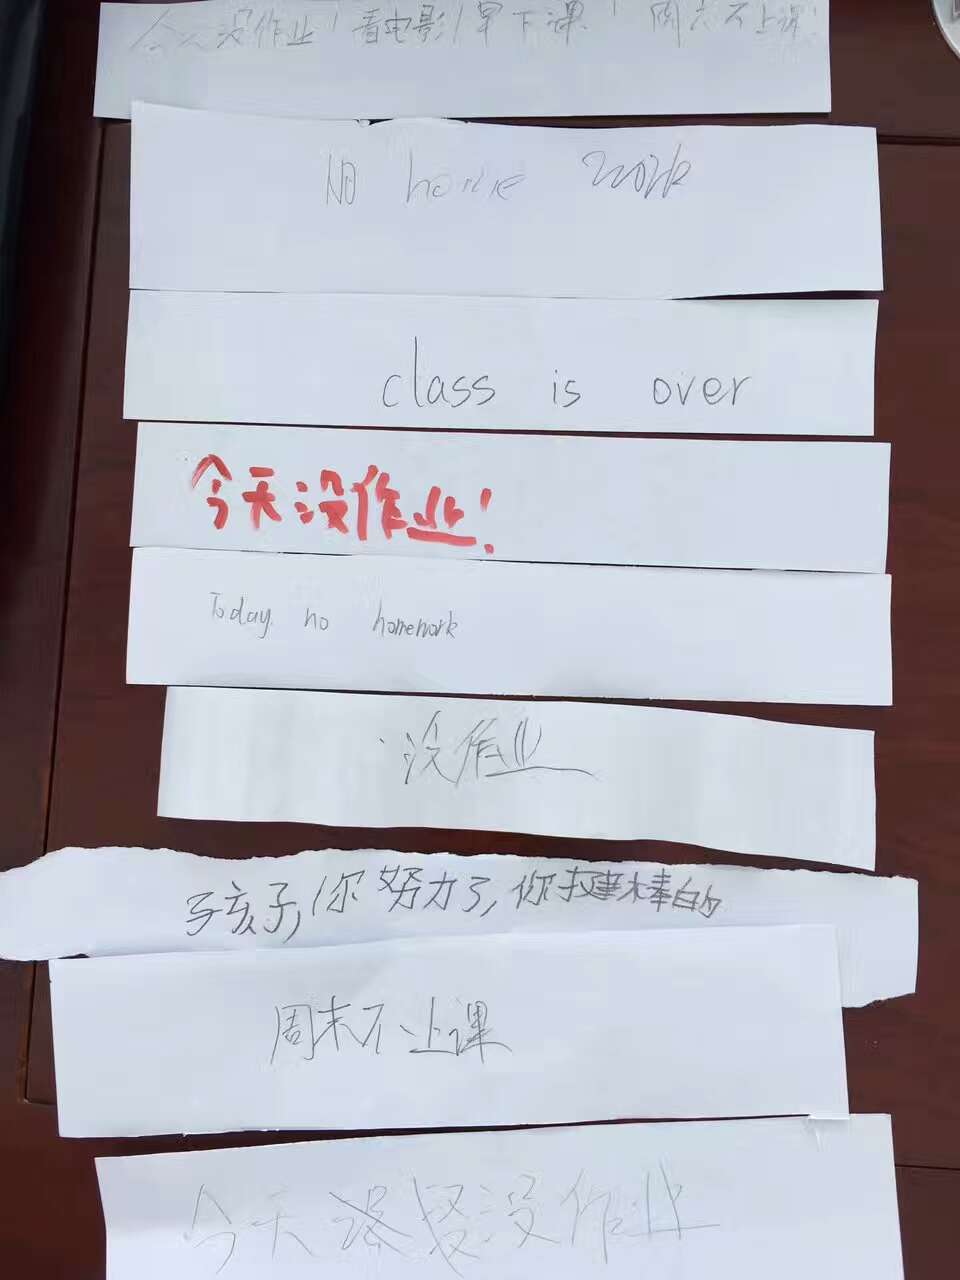 今天没作业！看电影！早下课！周六不上课！
No home work
class is over
今天没作业！
Today no homework
没作业
孩子，你努力了，你挺棒的
周末不上课
今天没作业